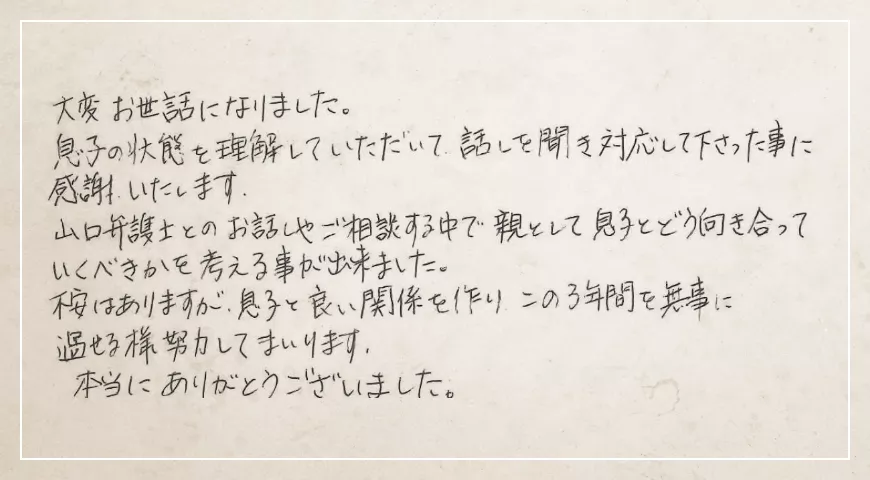 大変お世話になりました。
息子の状態を理解していただいて、話しを聞き対応して下さった事に
感謝いたします。
山口弁護士とのお話しやご相談する中で親として息子とどう向き合って
いくべきかを考える事が出来ました。
不安はありますが、息子と良い関係を作り、この3年間を無事に
過せる様努力してまいります。
本当にありがとうございました。